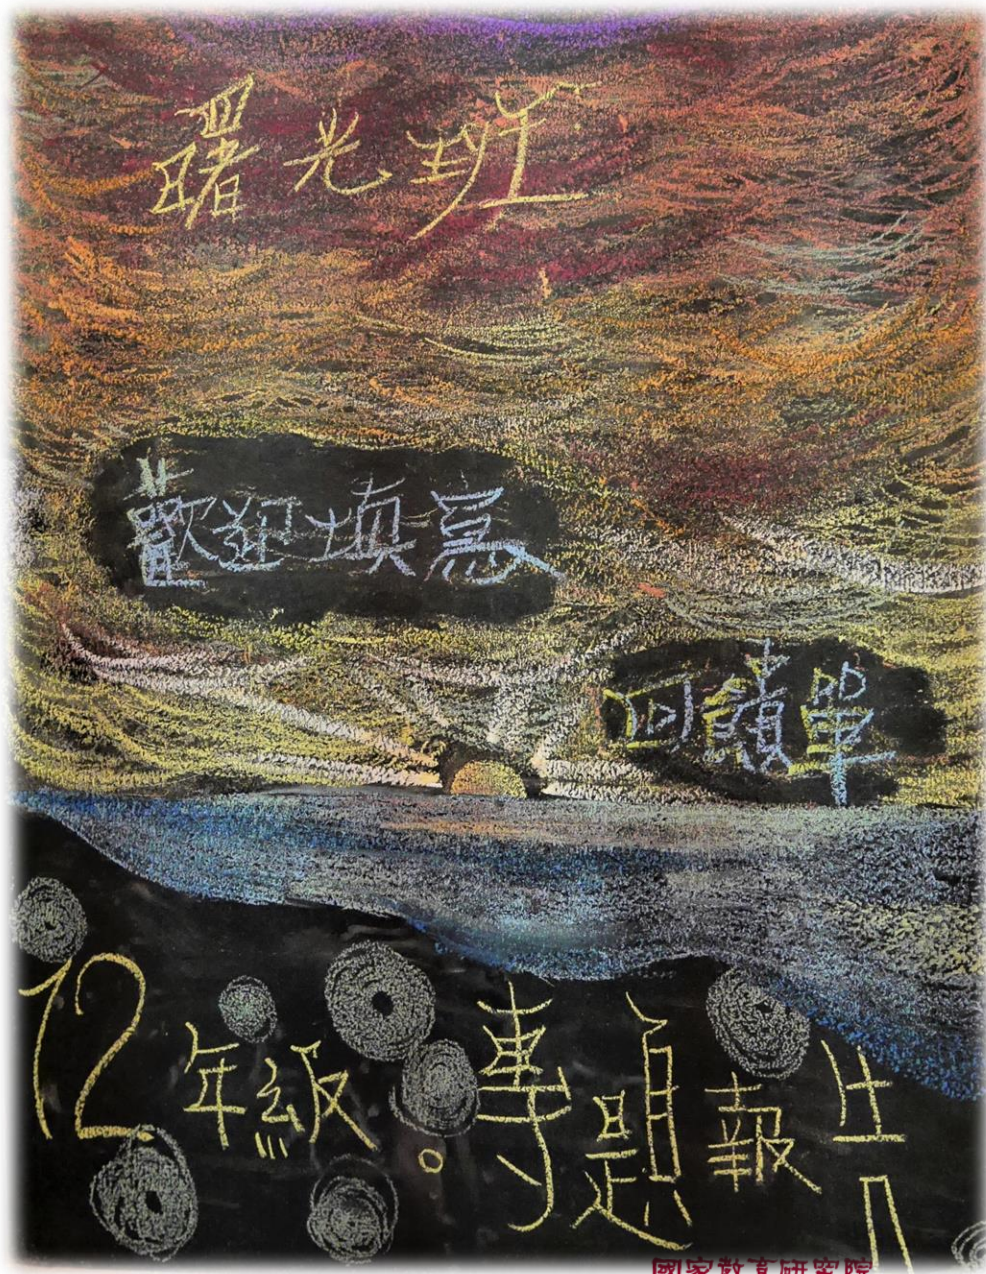 曙光班
歡迎填寫
回饋單
12年級。專題報告
國家教育研究院